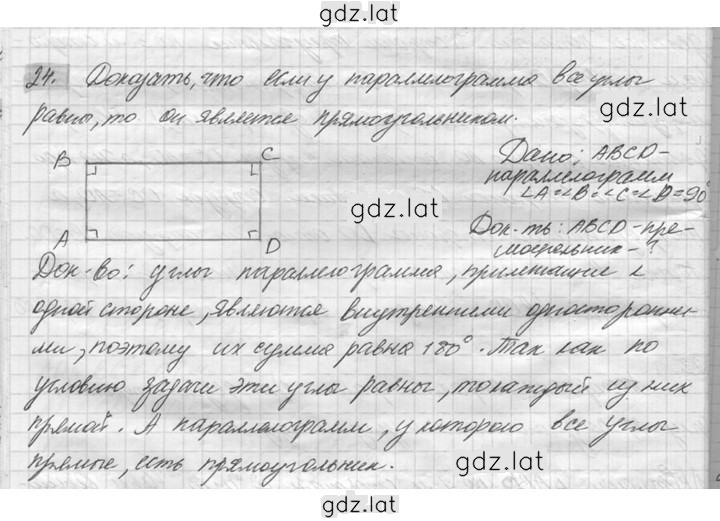 gdz.lat
gdz.lat
24. Доказать, что если у параллелограмма все углы
равны, то он является прямоугольником.
gdz.lat
B C
Дано: ABCD -
параллелограмм
∠A=∠B=∠C=∠D=90°
gdz.lat
A D
Док-ть: ABCD - пря-
моугольник - ?
Док-во: углы параллелограмма, прилежащие к
одной стороне, являются внутренними односторонни-
ми, поэтому их сумма равна 180°. Так как по
условию задачи эти углы равны, то каждый из них
прямой. А параллелограмм, у которого все углы
прямые, есть прямоугольник.
gdz.lat
gdz.lat